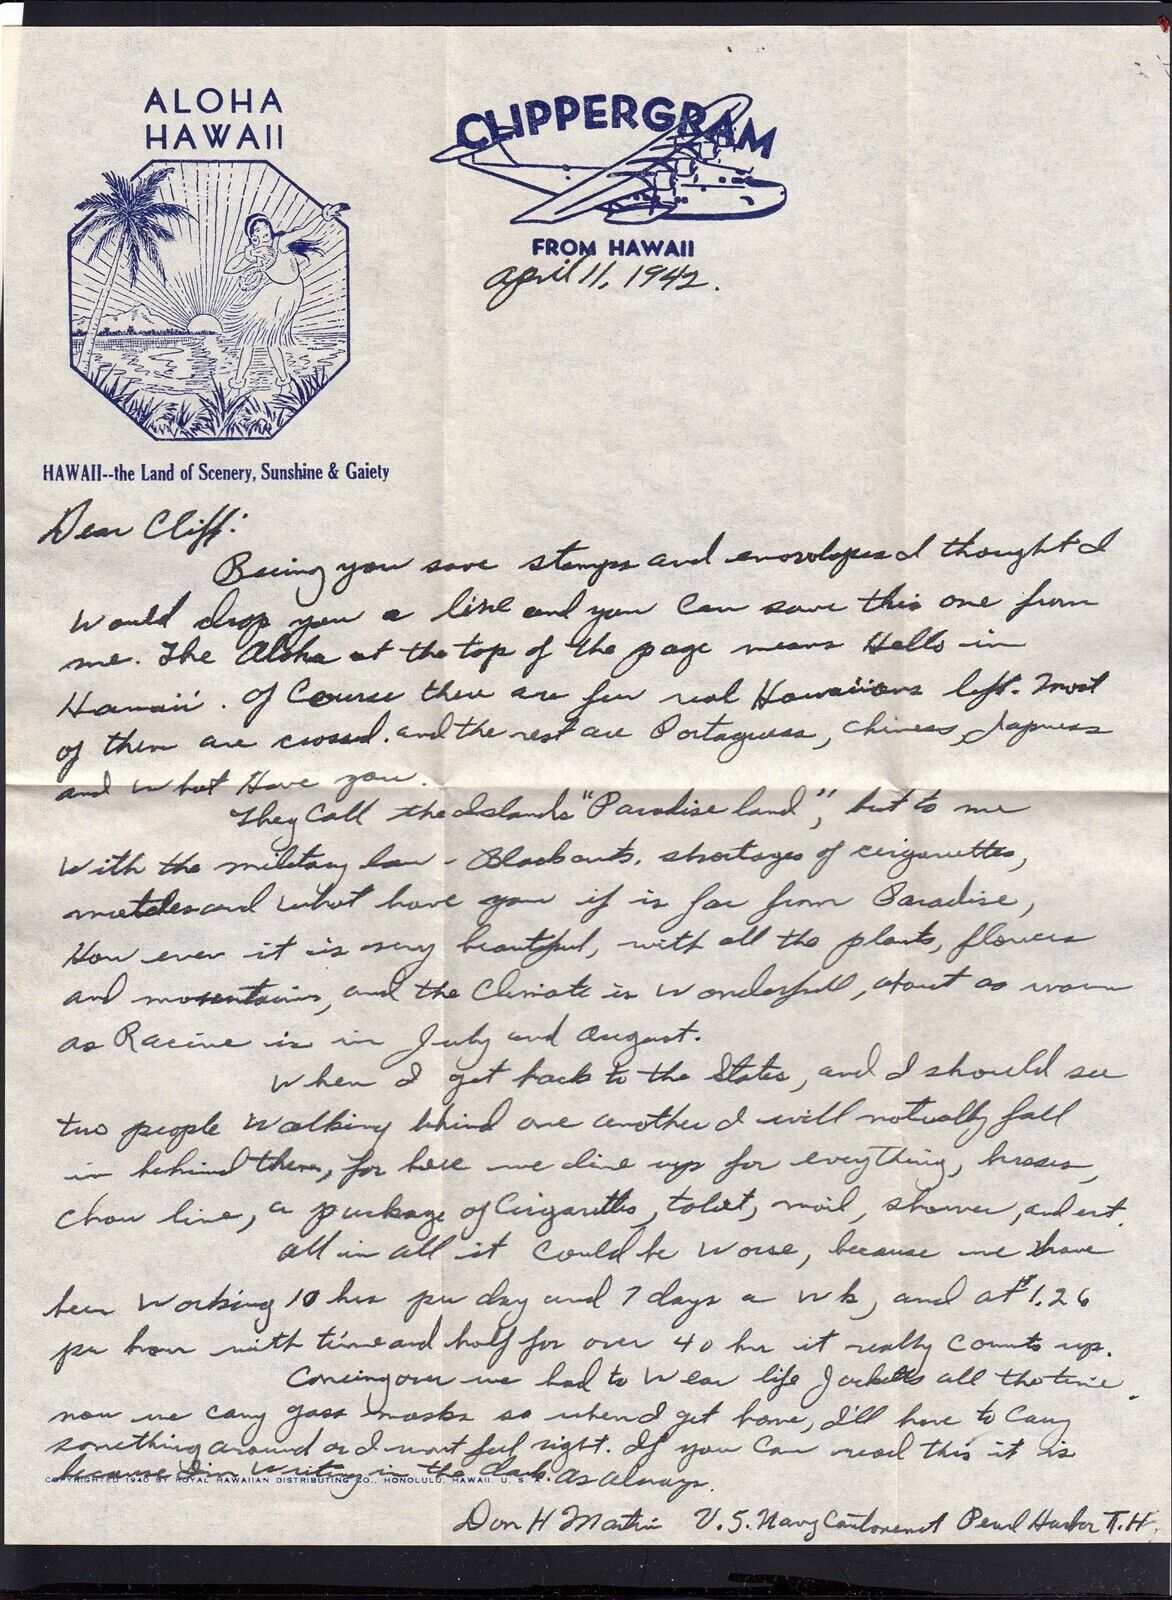 ALOHA
HAWAII
CLIPPERGRAM
FROM HAWAII
April 11, 1942.
HAWAII--the Land of Scenery, Sunshine & Gaiety
Dear Cliff:
Being you save stamps and envolopes I thought I
would drop you a line and you can save this one from
me. The Aloha at the top of the page means Hello in
Hawaii. Of course there are few real Hawaiians left. Most
of them are crossed. and the rest are Portaguess, Chiness, Japness
and what have you.
They call the Islands "Paradise land", but to me
with the military law - Blackouts. shortages of cirgarettes,
matches and what have you if is far from Paradise,
How ever it is very beautiful, with all the plants, flowers
and mountains, and the Climate is wonderfull, about as warm
as Racine is in July and August.
When I get back to the States, and I should see
two people walking behind one another I will natually fall
in behind them, for here we line up for everything, busses,
chow line, a package of Cirgaretts, tolet, mail, shower, and ect.
All in all it could be worse, because we have
been working 10 hrs per day and 7 days a wk, and at $1.26
per hour with time and half for over 40 hrs it really counts up.
Coming over we had to wear life Jackets all the time.
now we carry gass masks so when I get home, I'll have to carry
something around or I wont feel right. If you can read this it is
because I'm writing in the dark. As always.
COPYRIGHTED 1940 BY ROYAL HAWAIIAN DISTRIBUTING CO., HONOLULU, HAWAII, U. S. A.
Don H Martin U.S. Navy Cantonment Pearl Harbor T.H.